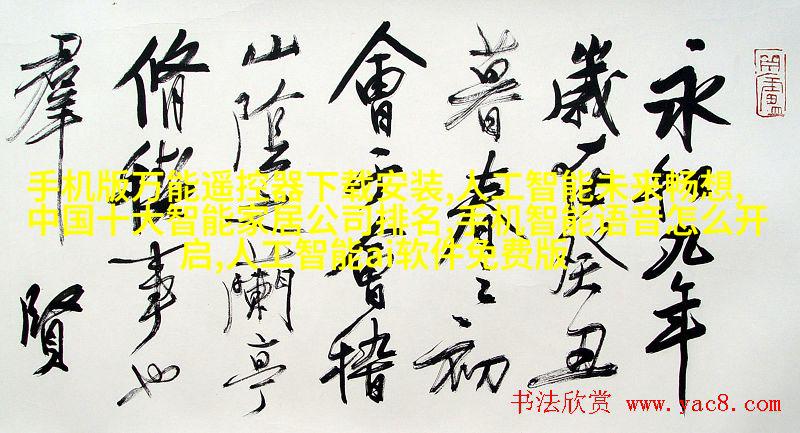 永和九年
歲在癸丑
暮春之初
會于會稽
山陰之蘭亭
脩禊事也
羣賢
手机版万能遥控器下载安装,人工智能未来畅想,
中国十大智能家居公司排名,手机智能语音怎么开
启,人工智能ai软件免费版
书法欣赏 www.yac8.com